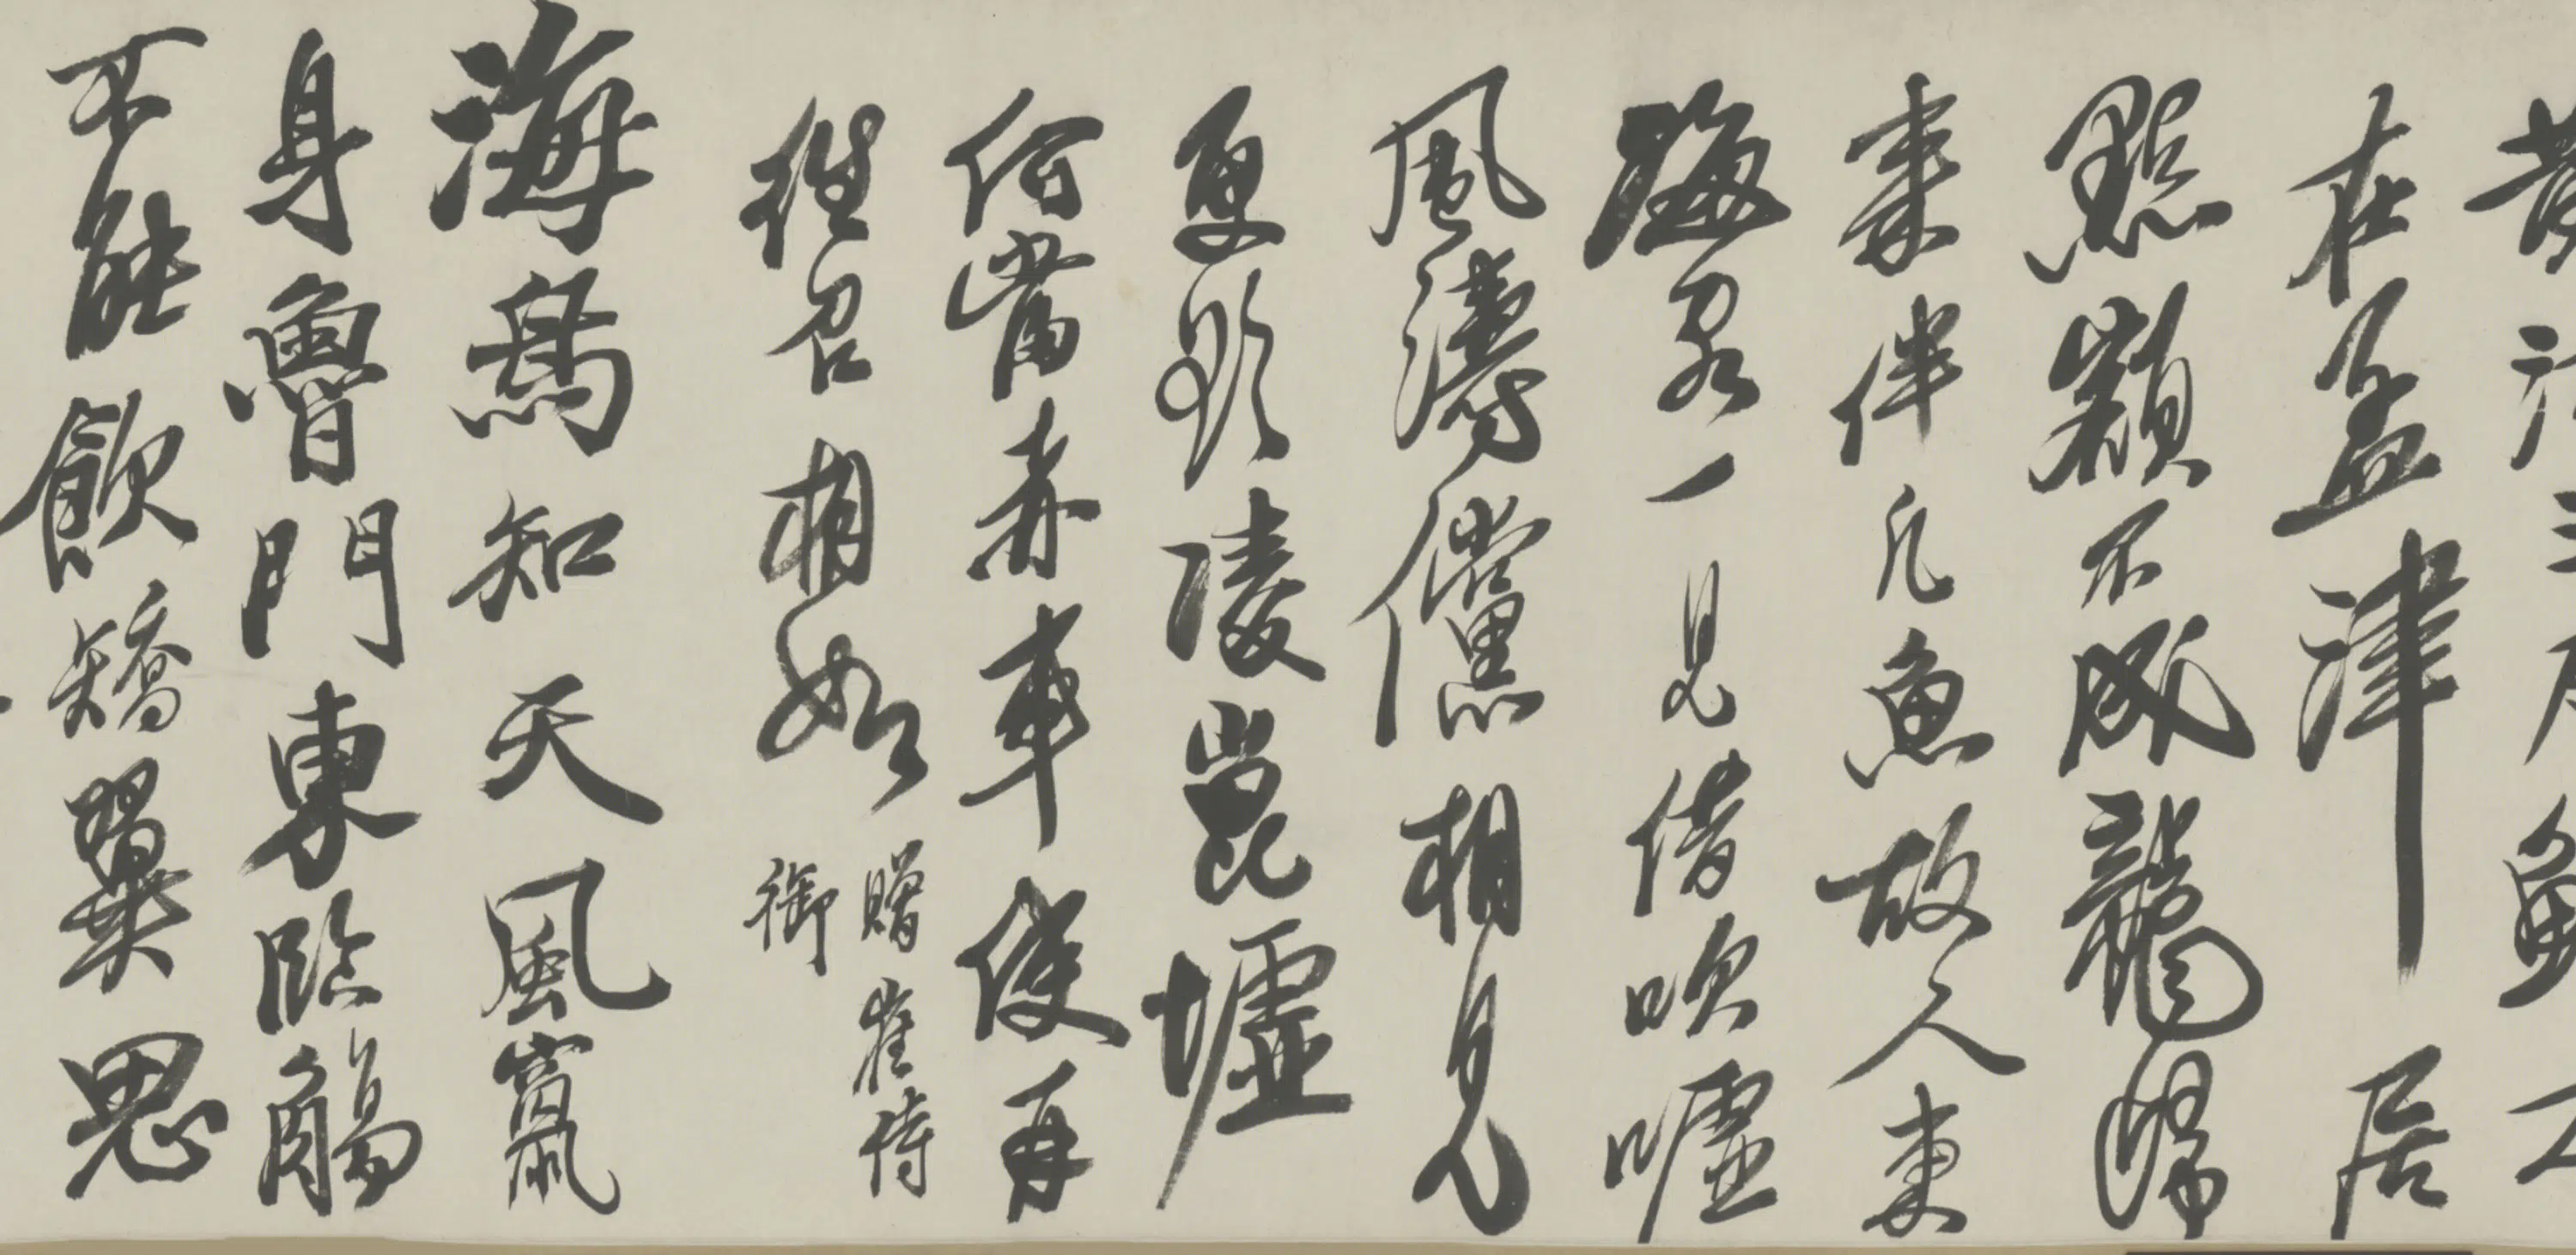 黃河三尺鯉
在孟津居
點額不成龍歸
來伴凡魚故人東
海客一見借吹噓
風濤儻相見
更欲陵崑墟
何當赤車使再
往召相如
贈崔侍
御
海鳥知天風竄
身魯門東臨觴
不能飲矯翼思